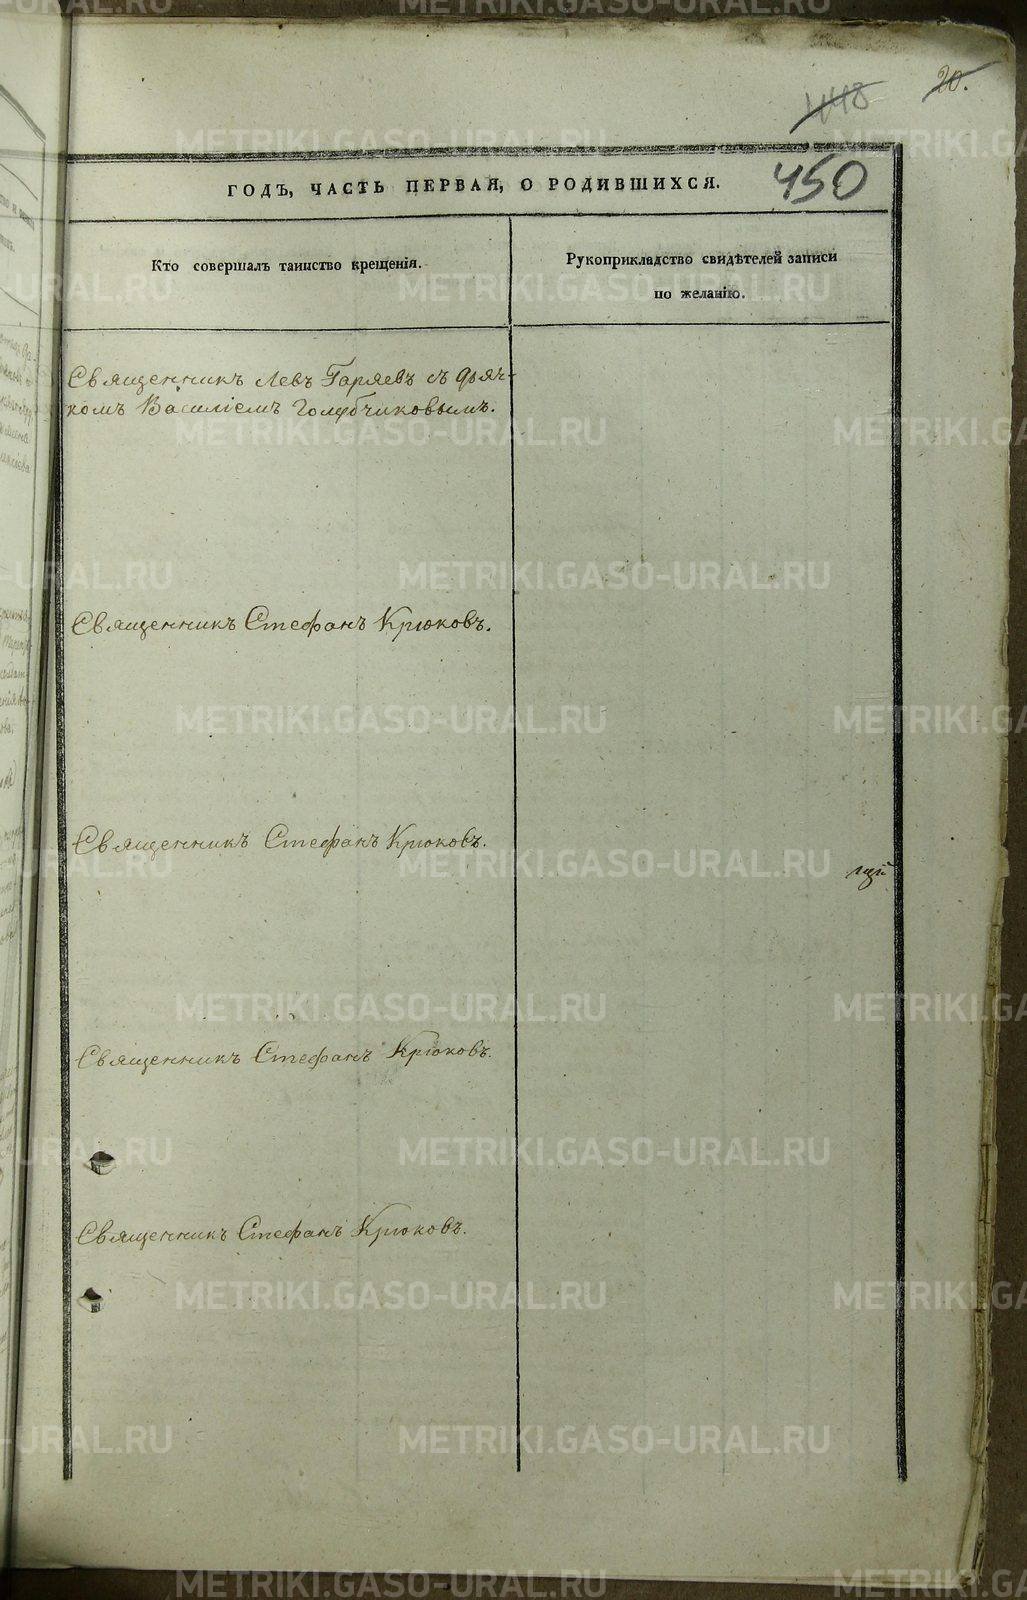 20.
450
ГОДЪ, ЧАСТЬ ПЕРВАЯ, О РОДИВШИХСЯ.
Кто совершалъ таинство крещенія.
Рукоприкладство свидѣтелей записи
по желанію.
Священникъ Левъ Гаряевъ съ дьяч-
комъ Василіемъ Голубчиковымъ.
Священникъ Стефанъ Крюковъ.
Священникъ Стефанъ Крюковъ.
Священникъ Стефанъ Крюковъ.
Священникъ Стефанъ Крюковъ.
METRIKI.GASO-URAL.RU